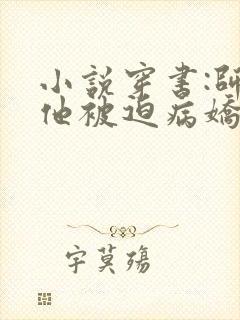 小說穿書:師
他被迫病嬌
宇莫殤